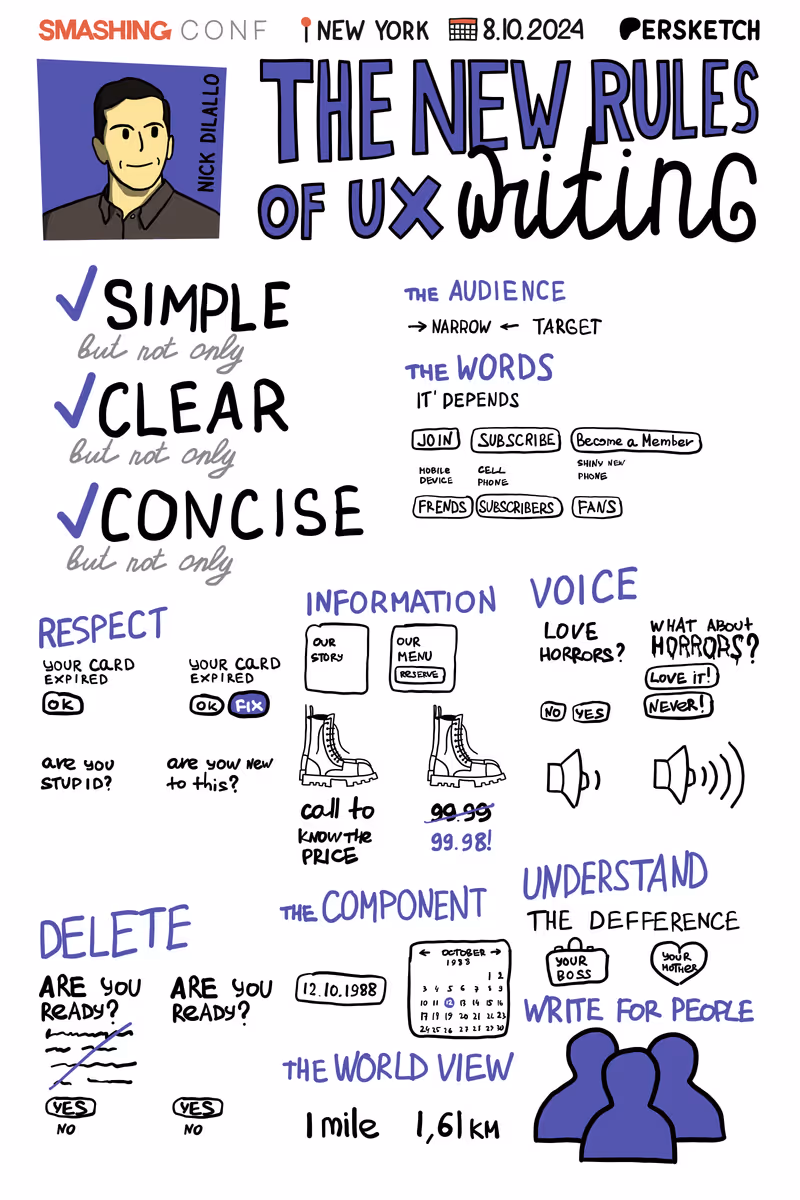 SMASHING CONF
NEW YORK
8.10.2024
PERSKETCH
NICK DILALLO
THE NEW RULES
OF UX writing
SIMPLE
but not only
CLEAR
but not only
CONCISE
but not only
THE AUDIENCE
→ NARROW ← TARGET
THE WORDS
IT' DEPENDS
JOIN SUBSCRIBE Become a Member
MOBILE DEVICE
CELL PHONE
SHINY NEW PHONE
FRENDS SUBSCRIBERS FANS
RESPECT
YOUR CARD
EXPIRED
OK
YOUR CARD
EXPIRED
OK FIX
are you
STUPID?
are yow new
to this?
INFORMATION
OUR
STORY
OUR
MENU
RESERVE
call to
KNOW THE
PRICE
99.99
99.98!
VOICE
LOVE
HORRORS?
NO YES
WHAT ABOUT
HORRORS?
LOVE IT!
NEVER!
DELETE
ARE YOU
READY?
YES
NO
ARE YOU
READY?
YES
NO
THE COMPONENT
12.10.1988
← OCTOBER →
1988
1 2
3 4 5 6 7 8 9
10 11 12 13 14 15 16
17 18 19 20 21 22 23
24 25 26 27 28 29 30
THE WORLD VIEW
1 mile 1,61 KM
UNDERSTAND
THE DEFFERENCE
YOUR
BOSS
YOUR
MOTHER
WRITE FOR PEOPLE